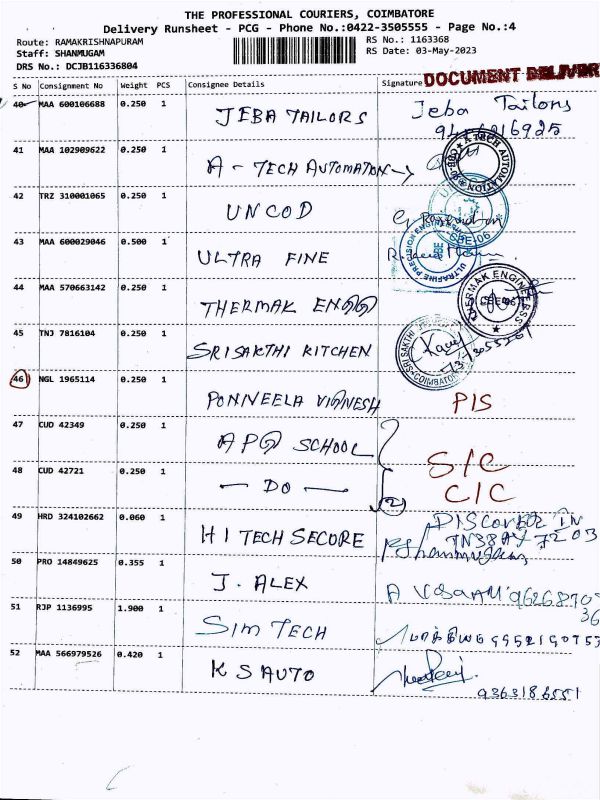 THE PROFESSIONAL COURIERS, COIMBATORE
Delivery Runsheet - PCG - Phone No.:0422-3505555 - Page No.:4
Route: RAMAKRISHNAPURAM
Staff: SHANMUGAM
DRS No.: DCJB116336804
RS No.: 1163368
RS Date: 03-May-2023
DOCUMENT DELIVER
S No Consignment No Weight PCS Consignee Details Signature
40 MAA 600106688 0.250 1 JEBA TAILORS Jeba Tailors
41 MAA 102909622 0.250 1 A - TECH AUTOMATION → A TECH AUTOMATION
42 TRZ 310001065 0.250 1 UNCOD
43 MAA 600029046 0.500 1 ULTRA FINE ULTRAFINE PRECISION
44 MAA 570663142 0.250 1 THERMAK ENGG THERMAK ENGINEERSS
45 TNJ 7816104 0.250 1 SRI SAKTHI KITCHEN SRI SAKTHI COIMBATORE
46 NGL 1965114 0.250 1 PONNEELA VIGNESH PIS
47 CUD 42349 0.250 1 APG SCHOOL S/C
48 CUD 42721 0.250 1 — DO — (2) C/C
49 HRD 324102662 0.060 1 HI TECH SECURE DISCOVER IN
50 PRO 14849625 0.355 1 J. ALEX
51 RJP 1136995 1.900 1 SIM TECH
52 MAA 566979526 0.420 1 K S AUTO
9363186551